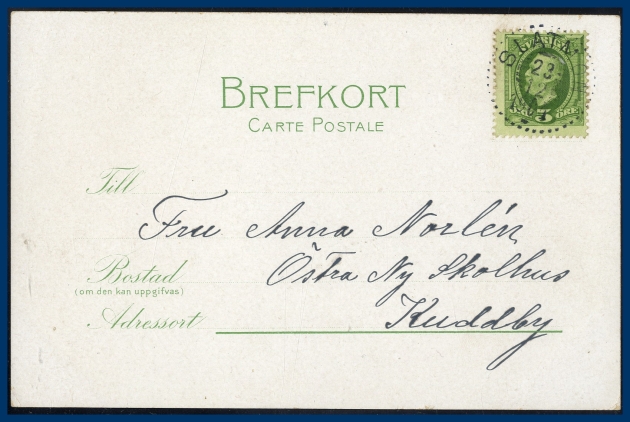 BREFKORT
CARTE POSTALE
23
5 ÖRE
Till
Fru Anna Norlén
Bostad
(om den kan uppgifvas)
Östra Ny Skolhus
Adressort
Kuddby